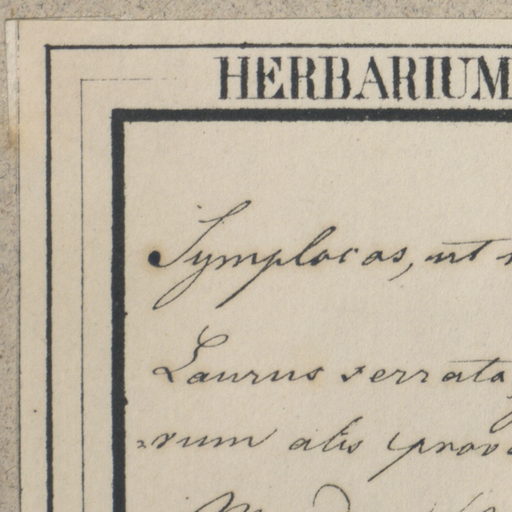 HERBARIUM
Symplocos, ut
Laurus serrata
=rum alis prov